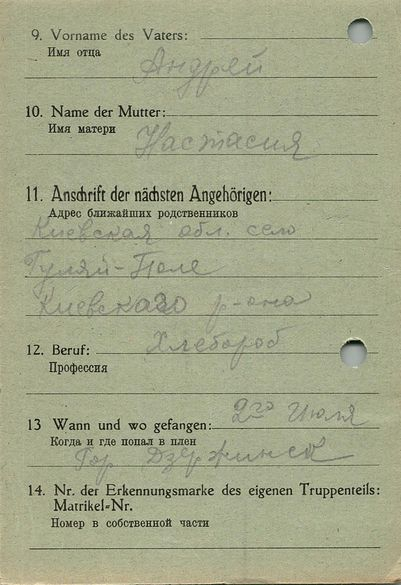 9. Vorname des Vaters:
Имя отца
Андрей
10. Name der Mutter:
Имя матери
Настасия
11. Anschrift der nächsten Angehörigen:
Адрес ближайших родственников
Киевская обл. село
Гуляй-Поле
Киевского р-она
Хлебороб
12. Beruf:
Профессия
2го Июля
13 Wann und wo gefangen:
Когда и где попал в плен
Гор Дзержинск
14. Nr. der Erkennungsmarke des eigenen Truppenteils:
Matrikel-Nr.
Номер в собственной части